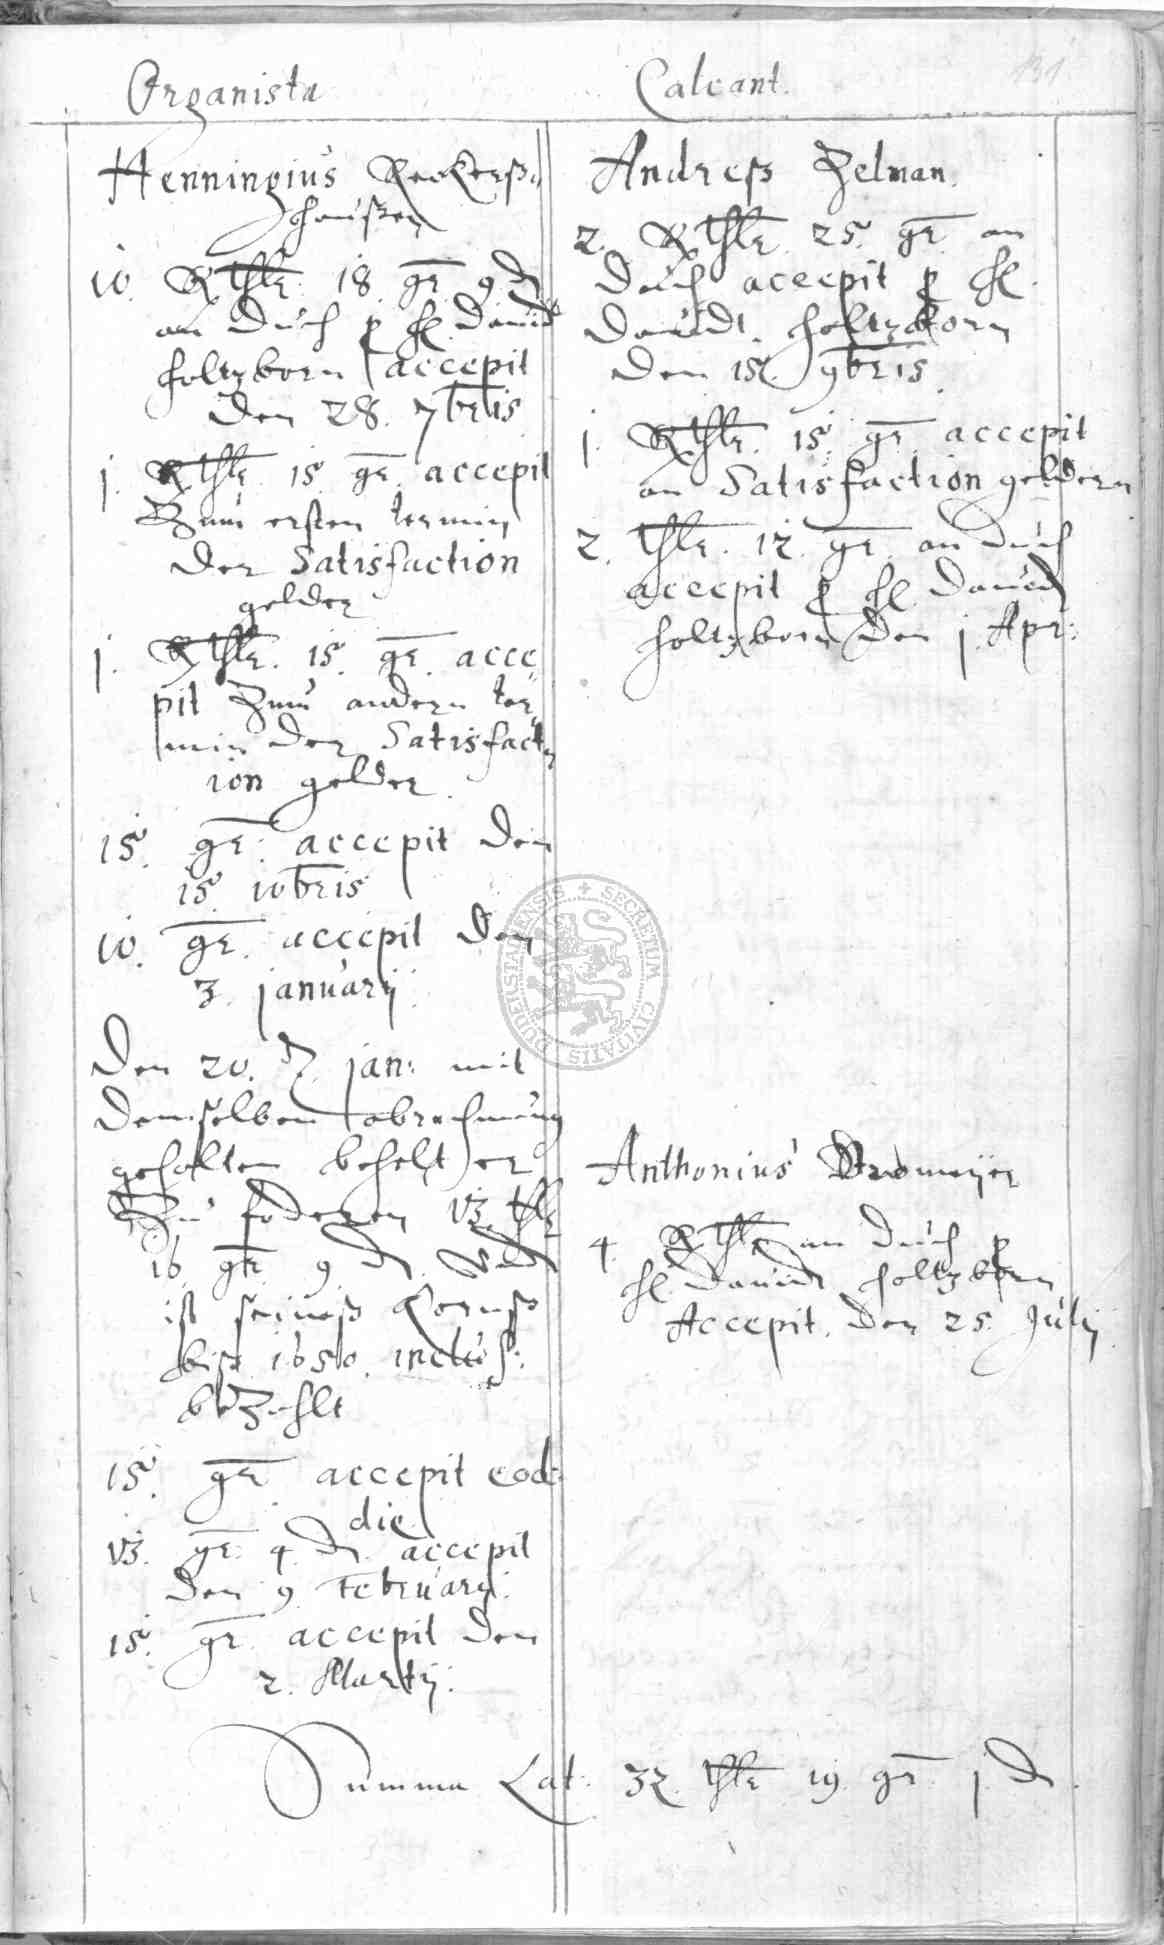 131
Organista
Henningius Reckerß„
haußen
10. Rthlr. 18. gr. 9 d
an duch p H. David
Holtzborn accepit
den 28. 7bris
j. Rthlr. 15. gr. accepit
Zum ersten termin
der Satisfaction
gelder
j. Rthlr. 15. gr. acce
pit Zum andern ter
min der Satisfact
ion gelder.
15. gr. accepit den
15. 10bris
10. gr. accepit den
3. januarij
Den 20. jan: mit
demselben abrechnung
gehalten behelt er
Zu foderen 13 thlr
16 gr 9 d Und
ist seineß Cornß
biß 1650. inclus:
bezahlt
15. gr accepit eod:
die
13. gr. 4. d. accepit
den 9. Februarij.
15. gr. accepit den
2. Martij.
Calcant.
Andreß Zelman.
2. Rthlr. 25. gr. an
duch accepit p H.
Davidt Holtzborn
den 15. 9bris
j. Rthlr. 15. gr. accepit
an Satisfaction geldern
2. thlr. 12. gr. an duch
accepit p H. David
Holtzborn den j. Apr:
Anthonius Bromeijer
4. Rthlr an duch p
H. David Holtzborn
Accepit. den 25. Julij
Summa Lat. 32. thlr 19. gr. j. d.
SECRETUM CIVITATIS DUDERSTADENSIS